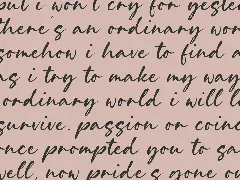 but i won't cry for yester
there's an ordinary wor
somehow i have to find a
as i try to make my way
ordinary world i will l
survive. passion or coinc
once prompted you to sa
well, now pride's gone ou